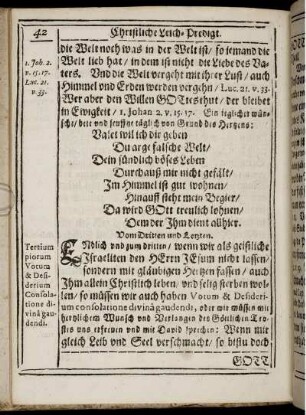 42
Christliche Leich-Predigt.
1. Joh. 2.
v. 15. 17.
Luc. 21.
v. 33.
die Welt noch was in der Welt ist/ so jemand die
Welt lieb hat/ in dem ist nicht die Liebe des Va-
ters. Und die Welt vergeht mit ihrer Lust/ auch
Himmel und Erden werden vergehn/ Luc. 21. v. 33.
Wer aber den Willen GOttes thut/ der bleibet
in Ewigkeit/ 1. Johan 2. v. 15. 17. Ein jeglicher wün-
sche/ bete und seuffze täglich von Grund des Hertzens:
Valet wil ich dir geben
Du arge falsche Welt/
Dein sündlich böses Leben
Durchauß mir nicht gefält/
Im Himmel ist gut wohnen/
Hinauff steht mein Begier/
Da wird GOtt treulich lohnen/
Dem der Ihm dient allhier.
Vom Dritten und Letzten.
Tertium
piorum
Votum &
Deside-
rium
Consola-
tione di-
vinâ gau-
dendi.
Endlich und zum dritten/ wenn wir als geistliche
Israeliten den HErrn JEsum nicht lassen/
sondern mit gläubigen Hertzen fassen/ auch
Ihm allein Christlich leben/ und selig sterben wol-
len/ so müssen wir auch haben Votum & Desideri-
um consolatione divinâ gaudendi, oder wir müssen mit
hertzlichem Wunsch und Verlangen des Göttlichen Tro-
stes uns erfreuen und mit David sprechen: Wenn mir
gleich Leib und Seel verschmacht/ so bistu doch
GOTT